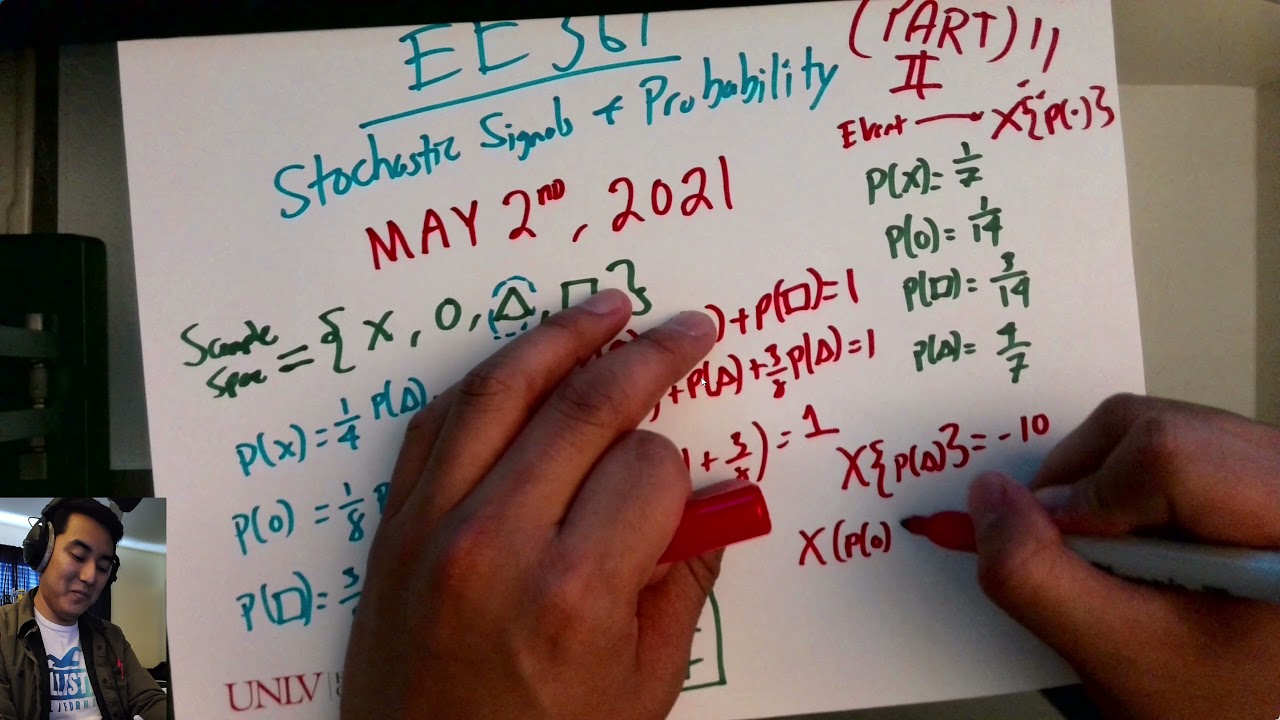 EE 361
(PART)
II
Stochastic Signals + Probability
MAY 2ND, 2021
Event → X{P(·)}
P(X)= 1/7
P(0)= 1/14
P(□)= 3/14
P(Δ)= 4/7
Sample
Space = {X, 0, Δ, □}
) + P(□)=1
+ P(Δ) + 3/8 P(Δ)=1
P(X) = 1/4 P(Δ)
P(0) = 1/8
P(□)=
= 1
X{P(Δ)}= -10
X(P(0)
UNLV